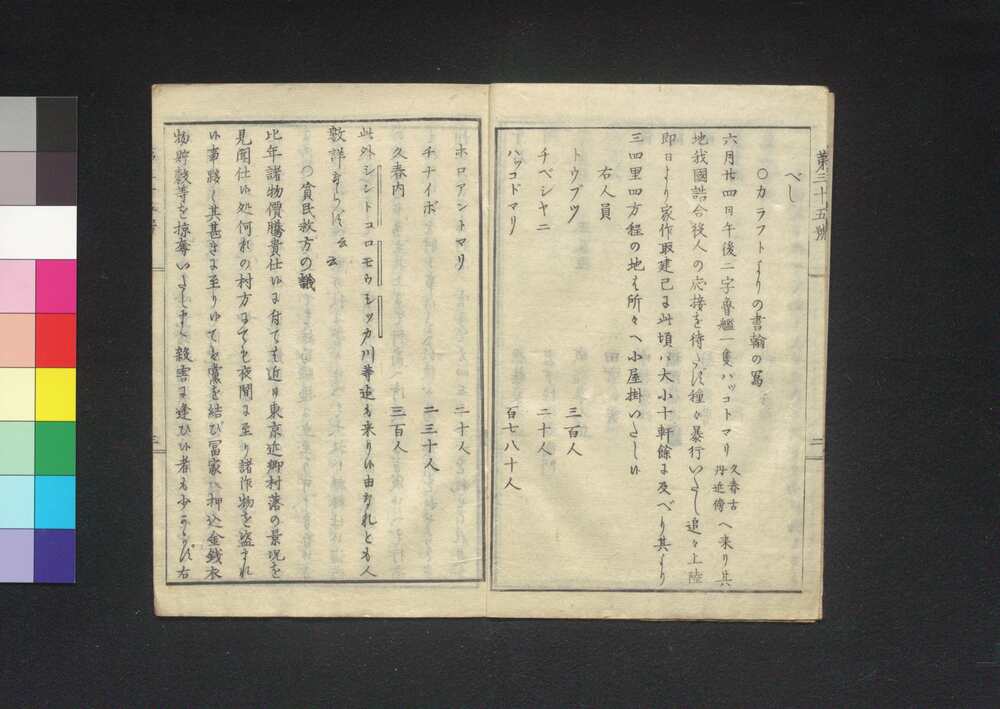 第三十五號
べし
○カラフトよりの書翰の冩
六月廿四日午後二字魯艦一隻ハッコトマリ久春古丹近傍へ来り其
地我國詰合役人の応接を待たす種々暴行いたし追々上陸
即日より家作取建已に此頃ハ大小十軒餘に及べり其より
三四里四方程の地は所々へ小屋掛いたし候
右人員
トウブツ 三百人
チベシヤニ 二十人
ハッコドマリ 百七八十人
二
ホロアントマリ 二十人
チナイボ 二三十人
久春内 三百人
此外シントコロモウシッカ川等追々来り候由なれとも人
数詳ならず云云
○貧民救方の議
比年諸物價騰貴仕候に付ても近日東京近郷村落の景况を
見聞仕候処何れの村方にても夜間に至り諸作物を盗まれ
候事夥く其甚きに至り候ては黨を結び冨家へ押込金銭衣
物貯穀等を掠奪いたし殺害に逢ひ候者も少からず右